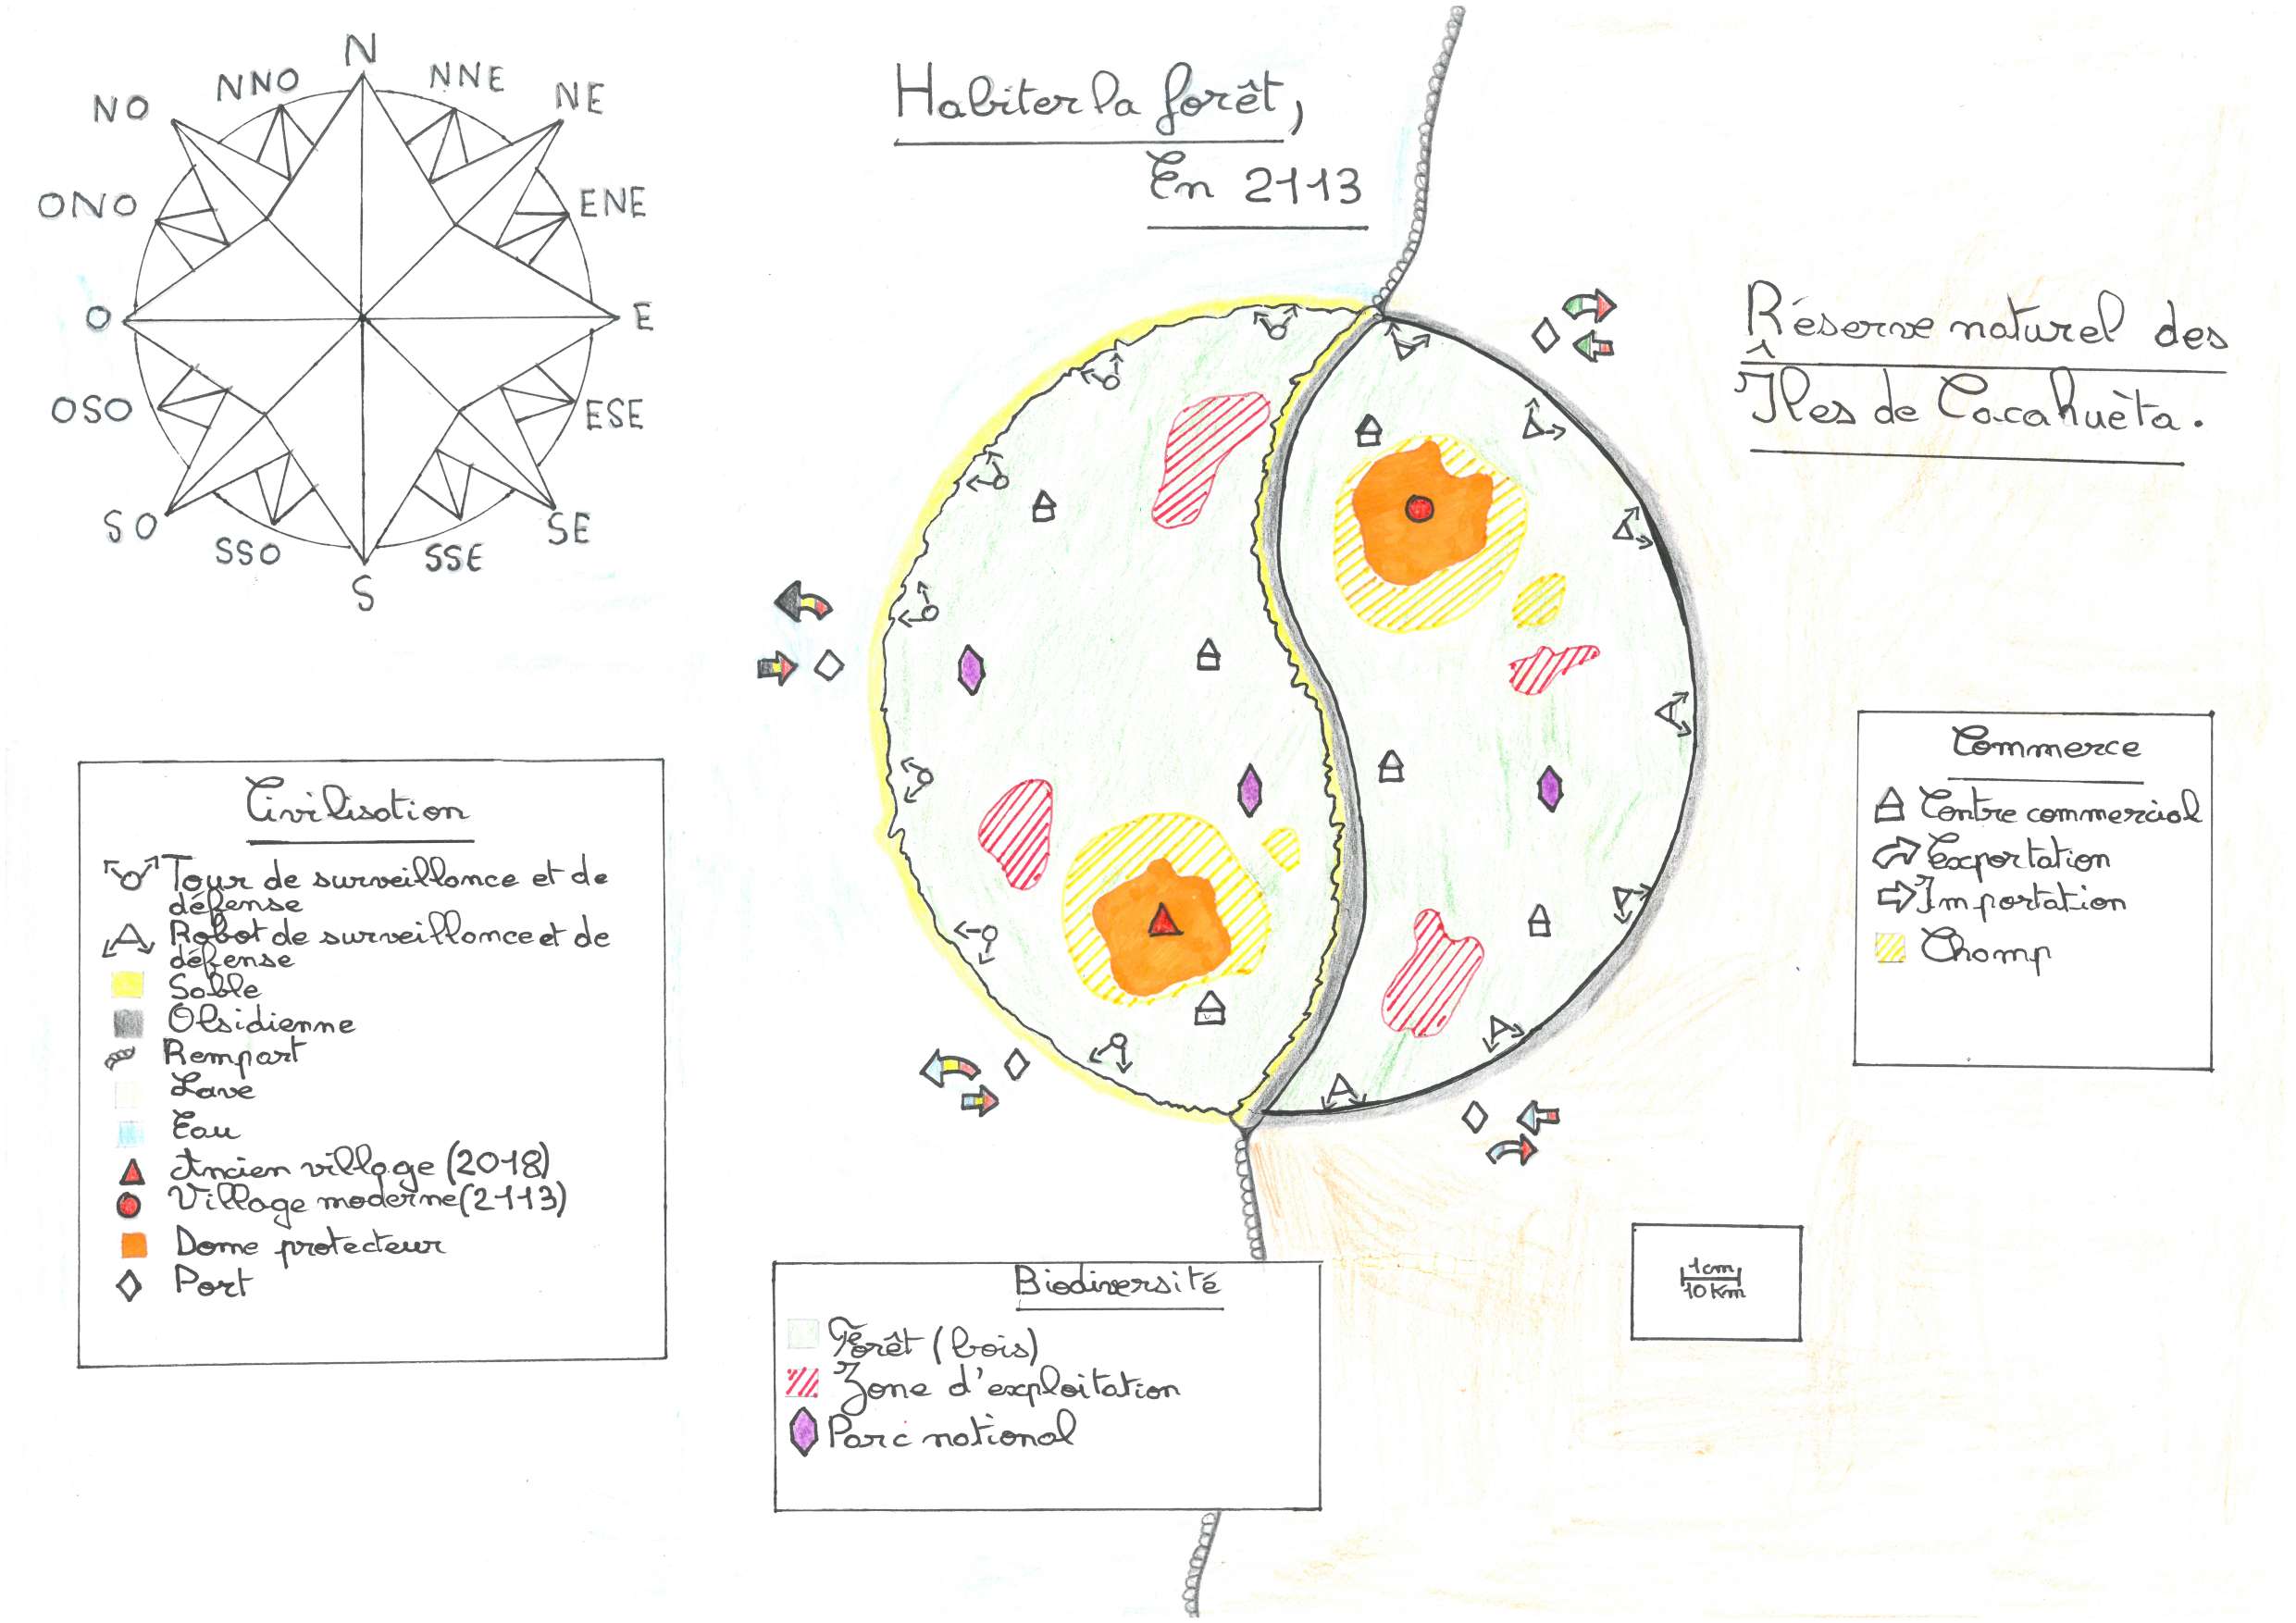 N
NNO
NNE
NO
NE
ONO
ENE
O
E
OSO
ESE
SO
SE
SSO
SSE
S
Habiter la forêt,
En 2113
Réserve naturel des
Îles de Cacahuèta.
Civilisation
Tour de surveillance et de
défense
Robot de surveillance et de
défense
Sable
Obsidienne
Rempart
Lave
Eau
Ancien village (2018)
Village moderne (2113)
Dome protecteur
Port
Biodiversité
Forêt (bois)
Zone d'exploitation
Parc national
Commerce
Centre commercial
Exportation
Importation
Champ
1cm
10 Km